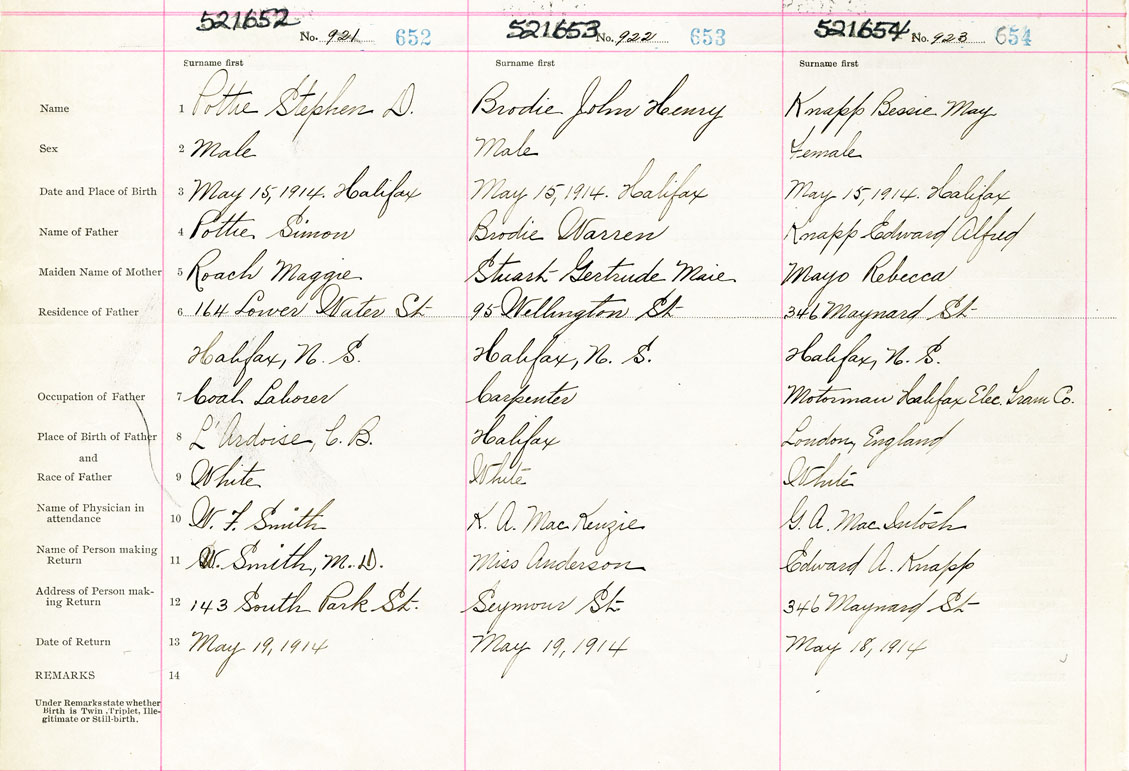 521652 521653 521654
No. 921 652 No. 922 653 No. 923 654
Surname first Surname first Surname first
Name 1 Pottie Stephen D. Brodie John Henry Knapp Bessie May
Sex 2 Male Male Female
Date and Place of Birth 3 May 15, 1914. Halifax May 15, 1914. Halifax May 15, 1914. Halifax
Name of Father 4 Pottie Simon Brodie Warren Knapp Edward Alfred
Maiden Name of Mother 5 Roach Maggie Stuart Gertrude Maie Mayo Rebecca
Residence of Father 6 164 Lower Water St 95 Wellington St 346 Maynard St
Halifax, N. S. Halifax, N. S. Halifax, N. S.
Occupation of Father 7 Coal Laborer Carpenter Motorman Halifax Elec. Tram Co.
Place of Birth of Father 8 L'Ardoise, C. B. Halifax London, England
and
Race of Father 9 White White White
Name of Physician in
attendance 10 W. F. Smith K. A. MacKenzie G. A. MacIntosh
Name of Person making
Return 11 W. Smith, M. D. Miss Anderson Edward A. Knapp
Address of Person mak-
ing Return 12 143 South Park St. Seymour St 346 Maynard St
Date of Return 13 May 19, 1914 May 19, 1914 May 18, 1914
REMARKS 14
Under Remarks state whether
Birth is Twin, Triplet, Ille-
gitimate or Still-birth.